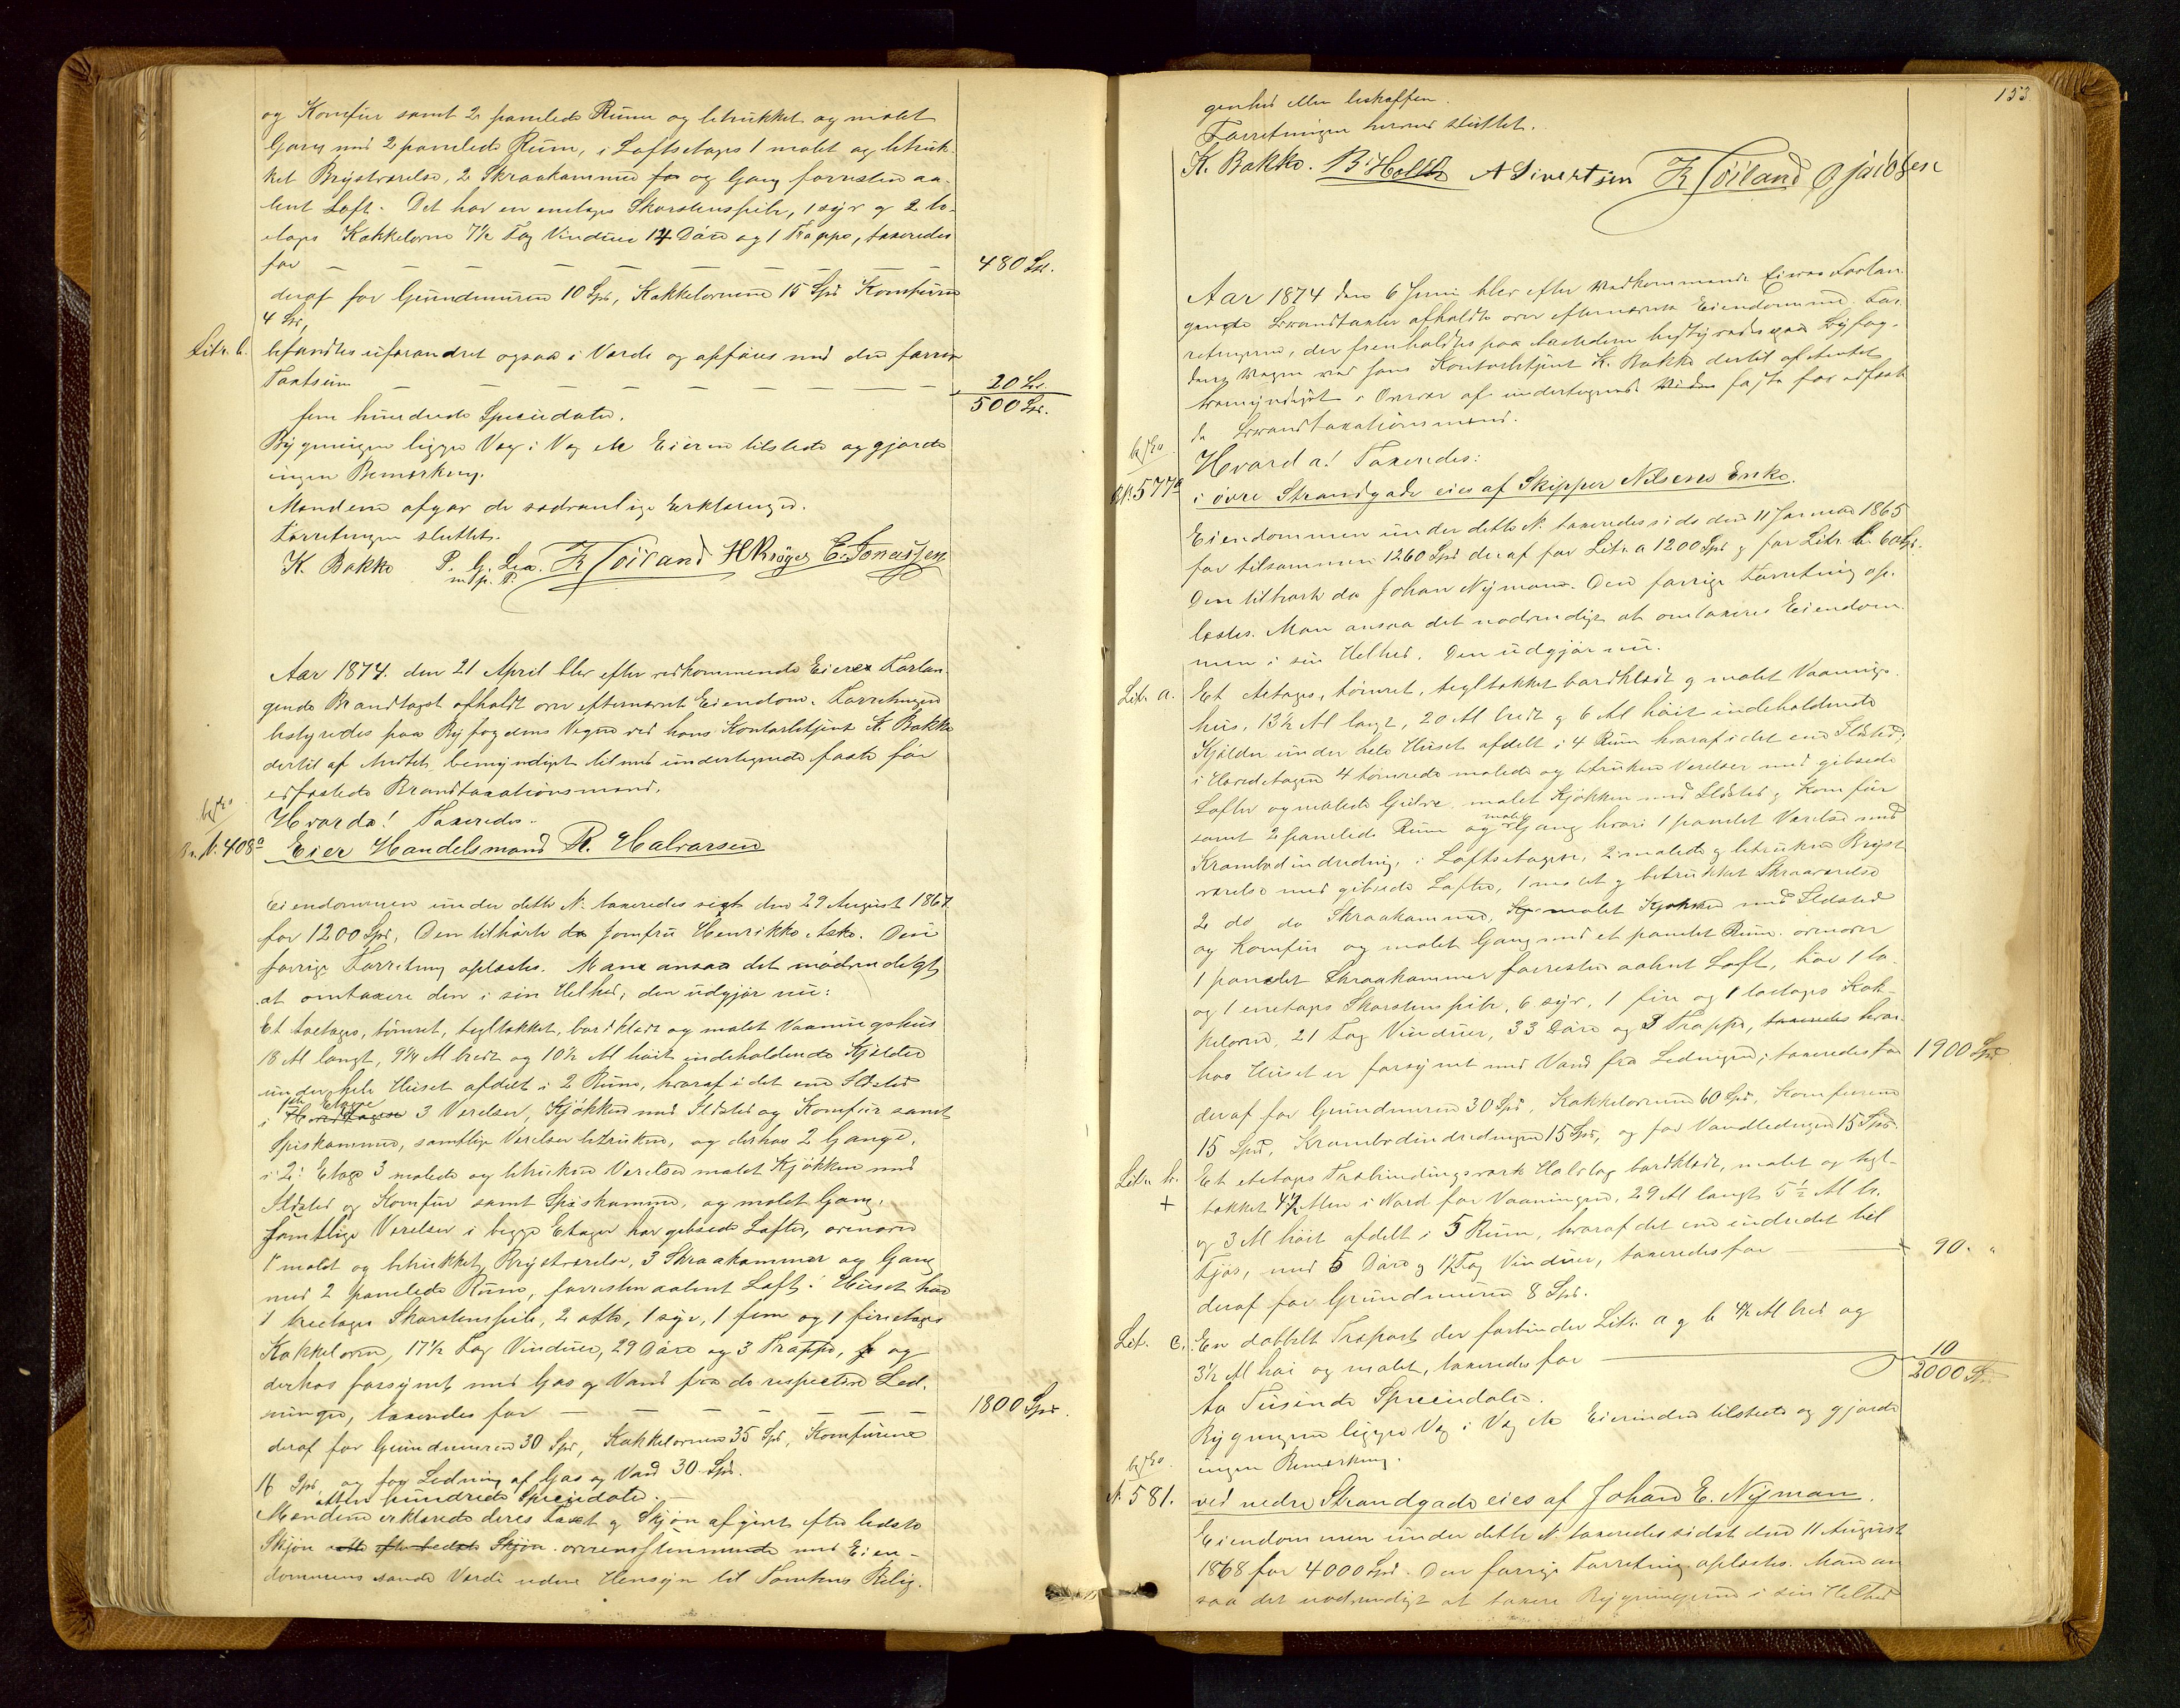 og Komfür samt 2 panelede Rum og betrukket og malet
Gang med 2 panelede Rum, i Loftsetagen 1 malet og betruk-
ket Brystværelse, 2 Skraakammere for og Gang forresten aa-
bent Loft. Det har en enetages Skorstenspibe, 1 syv og 2 to-
etages Kakkelovne 7½ Fag Vinduer 14 Döre og 1 Trappe, taxeredes
for — — — — — — — — 480 Spd.
deraf for Grundmuren 10 Spd, Kakkelovnene 15 Spd Komfüren
4 Spd,
Litr. b. befandtes uforandret ogsaa i Værdi og opföres med den forrige
Taxtsum — — — — — — — 20 Spd.
500 Spd.
fem hundrede Speciedaler.
Bygningen ligger Væg i Væg etc Eieren tilstede og gjorde
ingen Bemærkning.
Mændene afgav de sædvanlige Erklæringer.
Forretningen sluttet.
K. Bakke P. G. Lea. K Töiland H Kröger E. Jonassen
m. p. P.
Aar 1874. den 21 April blev efter vedkommende Eieres Forlan-
gende Brandtaxt afholdt over efternævnt Eiendom. Forretningen
bestyredes paa Byfogdens Vegne ved hans Kontorbetjent K. Bakke
dertil af Amtet bemyndiget tilmed undertegnede faste for
edfæstede Brandtaxationsmænd.
Hvorda! Taxeredes.
Br. N. 408a Eier Handelsmand R. Halvorsen
Eiendommen under dette N. taxeredes sidst den 29 August 1867
for 1200 Spd, Den tilhörte da Jomfru Henrikke Aske. Den
forrige Forretning oplæstes. Man ansaa det nödvendigt
at omtaxere den i sin Helhed, den udgjör nu:
Et toetages, tömret, tegltækket, bordklædt og malet Vaaningshus
18 Al langt, 9¼ Al bredt og 10½ Al höit indeholdende Kjelder
under hele Huset afdelt i 2 Rum, hvoraf i det ene Ildsted
i 1ste Etage Hovedetagen 3 Værelser, Kjökken med Ildsted og Komfür samt
Spiskammer, samtlige Værelser betrukne, og derhos 2 Gange,
i 2. Etage 3 malede og betrukne Værelser malet Kjökken med
Ildsted og Komfür samt Spiskammer, og malet Gang.
Samtlige Værelser i begge Etager har gibsede Lofter, ovenover
1 malet og betrukket Brystværelse, 3 Skraakammer og Gang
med 2 panelede Rum, forresten aabent Loft. Huset har
1 treetages Skorstenspibe, 2 otte, 1 syv, 1 fem og 1 fireetages
Kakkelovn, 17½ Fag Vinduer, 29 Döre og 3 Trapper, og
derhos forsynet med Gas og Vand fra de respective Led-
ninger, taxeredes for — — — — — — 1800 Spd.
deraf for Grundmuren 30 Spd, Kakkelovnene 35 Spd, Komfürene
16 Spd og for Ledning af Gas og Vand 30 Spd.
atten hundrede Speciedaler.
Mændene erklærede deres Taxt og Skjön afgivet efter bedste
Skjön efter bedste Skjön overensstemmende med Eien-
dommens sande Værdi uden Hensyn til Tomtens Belig-
153
genhed eller beskaffen.
Forretningen hermed sluttet.
K. Bakke. B. Holth A Sivertsen K Töiland O jacobsen
Aar 1874 den 6 Juni blev efter Vedkommende Eieres Forlan-
gende Brandtaxter afholdte over efternævnte Eiendomme. For-
retningerne, der fremholdtes paa Aastederne bestyredes paa Byfog-
dens Vegne ved hans Kontorbetjent K. Bakke dertil af Amtet
bemyndiget i Overvær af undertegnede faste for edfæst-
de Brandtaxationsmænd.
Hvorda! Taxeredes:
Br. N. 577a i övre Strandgade eies af Skipper Nilsens Enke.
Eiendommen under dette N. taxeredes sidst den 11 Januar 1865
for tilsammen 1260 Spd deraf for Litr. a 1200 Spd og for Litr. b. 60 Spd.
Den tilhörte da Johan Nyman. Den forrige Forretning op-
læstes. Man ansaa det nödvendigt at omtaxere Eiendom-
men i sin Helhed. Den udgjör nu.
Litr. a. Et etetages, tömret, tegltækket bordklædt og malet Vaanings-
hus, 13½ Al langt, 20 Al bredt og 6 Al höit indeholdende
Kjelder under hele Huset afdelt i 4 Rum hvoraf i det ene Ildsted,
i Hovedetagen 4 tömrede malede og betrukne Værelser med gibsede
Lofter og malede Gulve, malet Kjökken med Ildsted og Komfür
samt 2 panelede Rum og malet Gang hvori 1 panelet Værelse med
Krambodindredning, i Loftsetagen, 2 malede og betrukne Bryst-
værelse med gibsede Lofter, 1 malet og betrukket Skraaværelse
2 do do Skraakammer, Kj malet Kjökken med Ildsted
og Komfür og malet Gang med et panelet Rum. ovenover
1 panelet Skraakammer forresten aabent Loft, har 1 to
og 1 enetages Skorstenspibe, 6 syv, 1 fire og 1 toetages Kak-
kelovn, 21 Fag Vinduer, 33 Döre og 3 Trapper, taxeredes hvor-
hos Huset er forsynet med Vand fra Ledningen; taxeredes for 1900 Spd
deraf for Grundmuren 30 Spd, Kakkelovnene 60 Spd, Komfürene
15 Spd, Krambodindredningen 15 Spd, og for Vandledningen 15 Spd.
Litr. b. Et etetages Træbindingsværk Halvtag bordklædt, malet og tegl-
+ tækket 4½ Alen i Nord for Vaaningen, 29 Al langt 5½ Al b.
og 3 Al höit afdelt i 5 Rum, hvoraf det ene indredet til
Fjös, med 5 Döre og 1½ Fag Vinduer, taxeredes for — 90. "
deraf for Grundmuren 8 Spd.
Lit. c. En dobbelt Træport der forbinder Litr. a og b 4½ Al bred og
3½ Al höi og malet, taxeredes for — 10
2000 Spd.
to Tusinde Speciedaler.
Bygningerne ligger Væg i Væg etc Eierinden tilstede og gjorde
ingen Bemærkning.
N. 581. ved nedre Strandgade eies af Johan E. Nyman.
Eiendommen under dette N. taxeredes sidst den 11 August
1868 for 4000 Spd. Den forrige Forretning oplæstes. Man an
saa det nödvendigt at taxere Bygningerne i sin Helhed